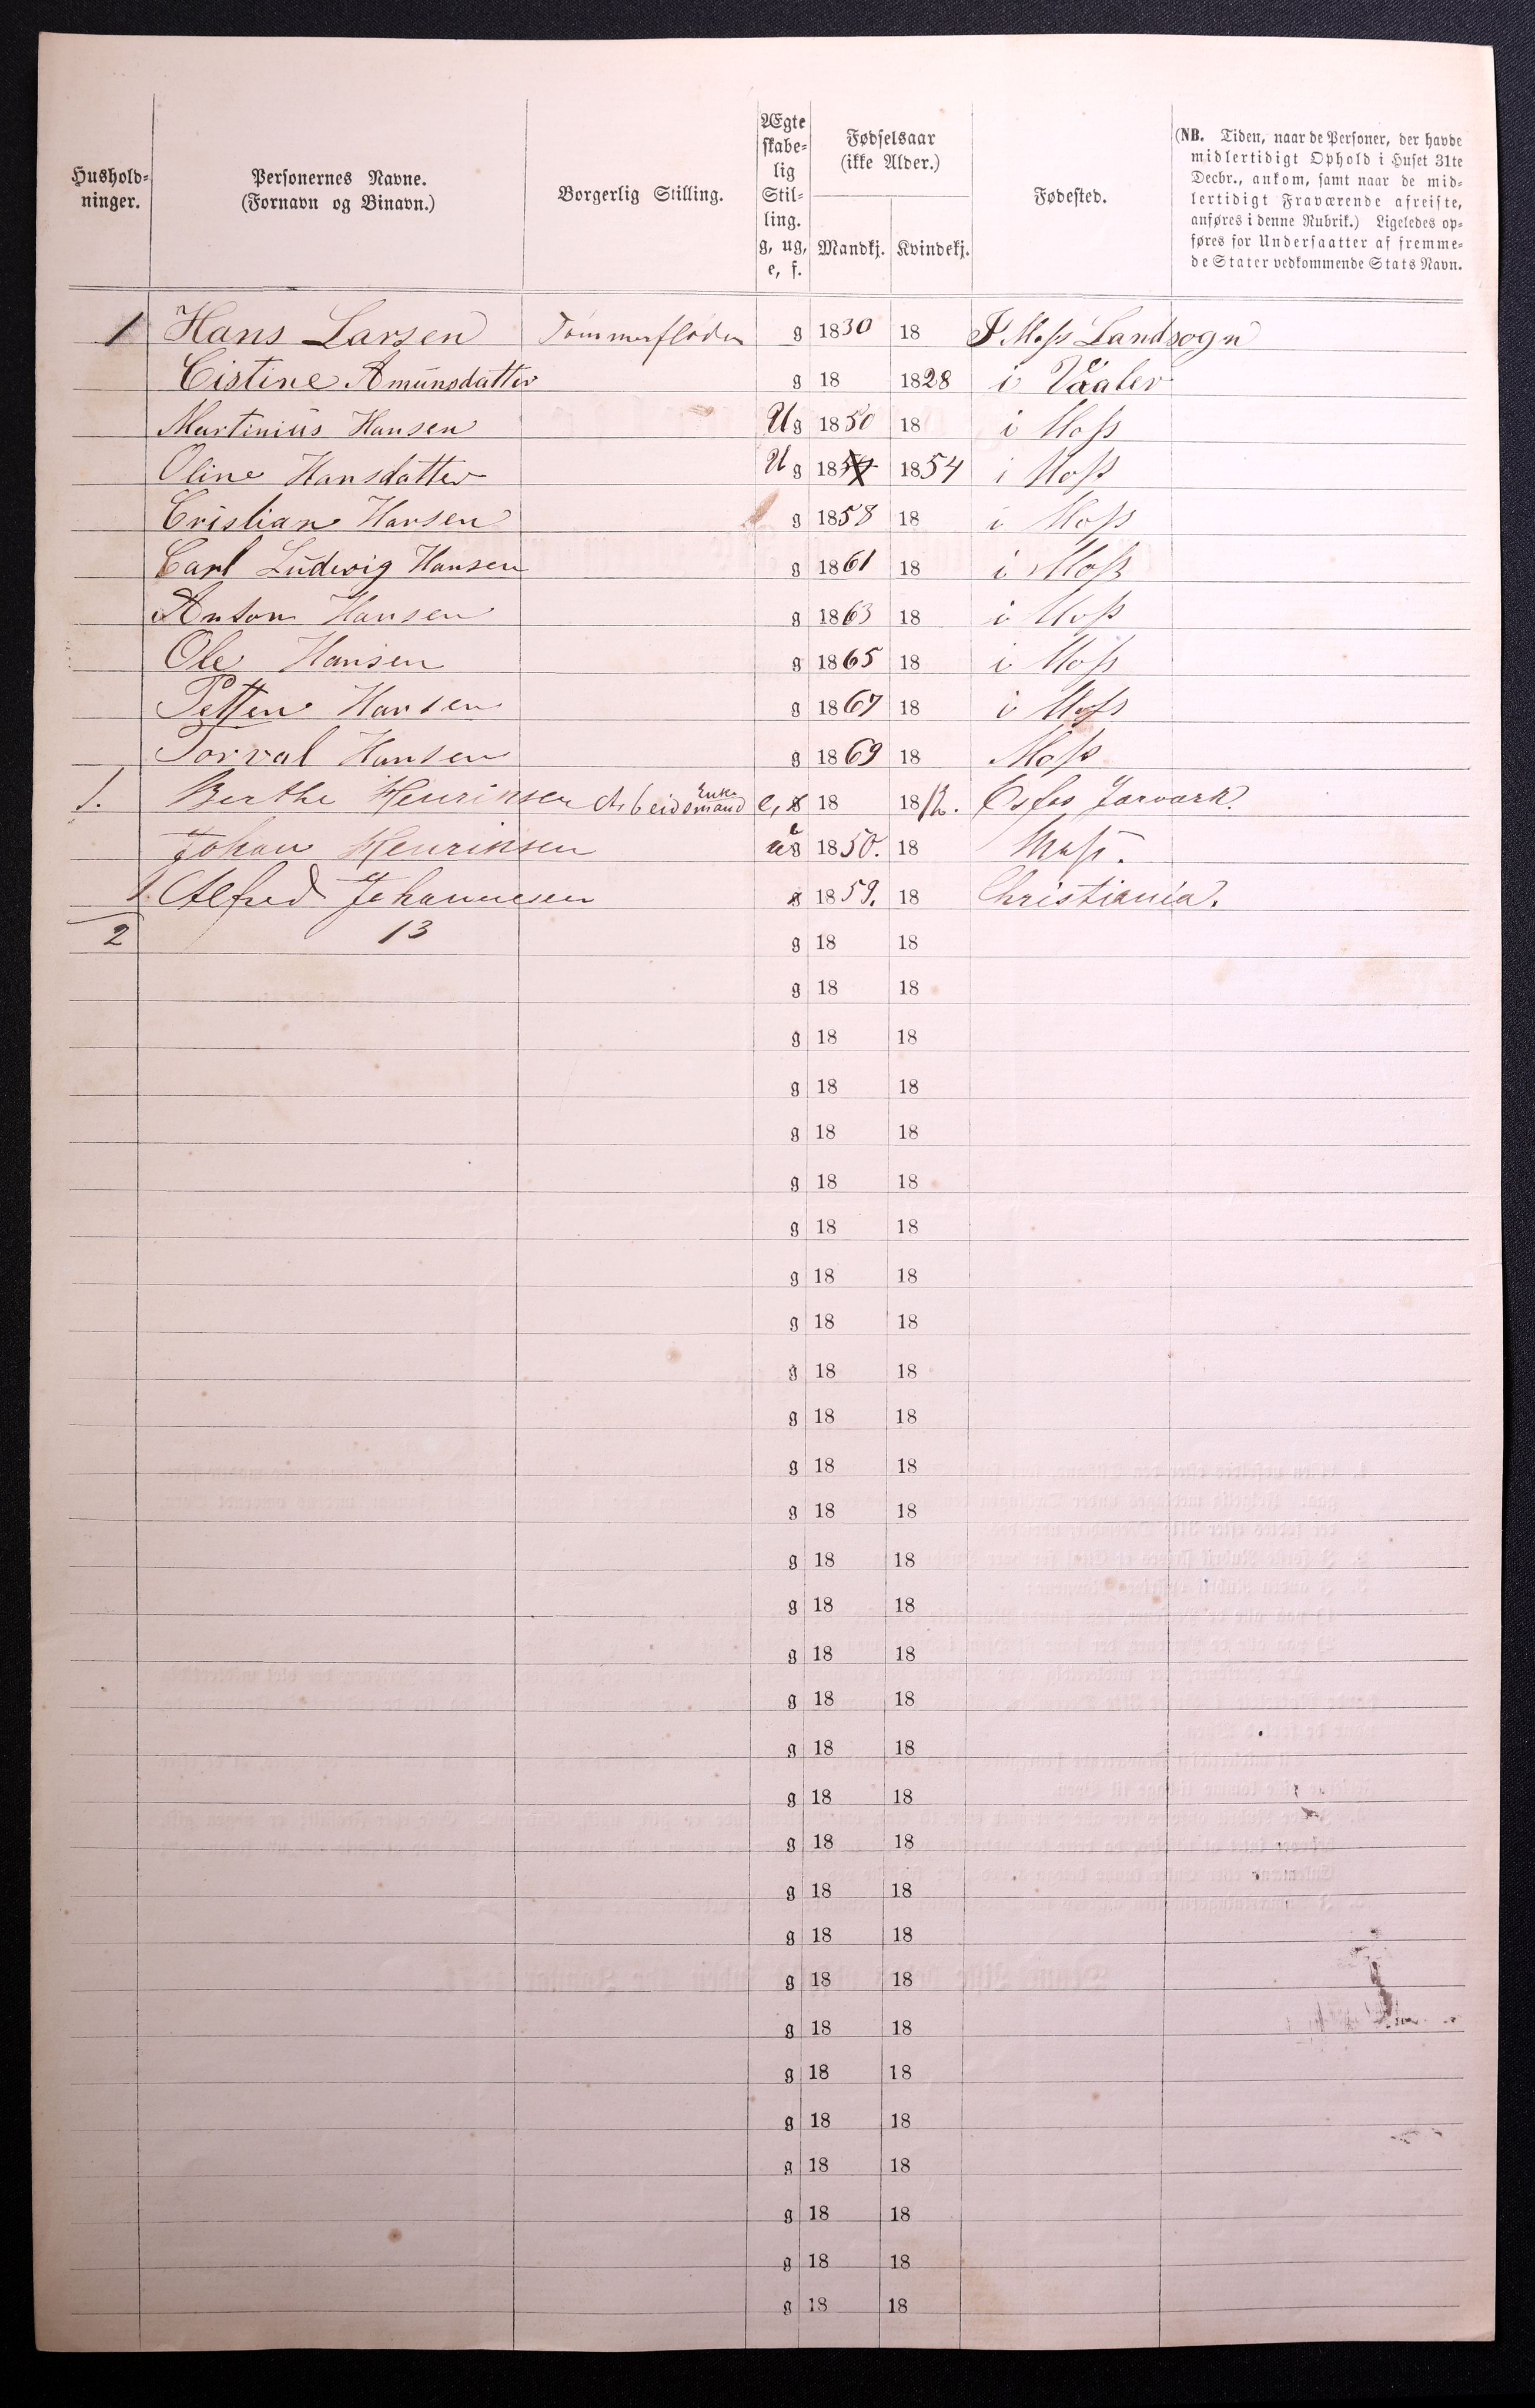 Hushold-
ninger.
Personernes Navne.
(Fornavn og Binavn.)
Borgerlig Stilling.
Ægte
skabe-
lig
Stil-
ling.
g, ug,
e, f.
Fødselsaar
(ikke Alder.)
Mandkj. Kvindekj.
Fødested.
(NB. Tiden, naar de Personer, der havde
midlertidigt Ophold i Huset 31te
Decbr., ankom, samt naar de mid-
lertidigt Fraværende afreiste,
anføres i denne Rubrik.) Ligeledes op-
føres for Undersaatter af fremme-
de Stater vedkommende Stats Navn.
1 Hans Larsen Tømmerfløder g 1830 18 I Moss Landsogn
Cistine Amunsdatter g 18 1828 i Vaaler
Martinius Hansen Ug 1850 18 i Moss
Oline Hansdatter Ug 1854 1854 i Moss
Cristian Hansen g 1858 18 i Moss
Carl Ludwig Hansen g 1861 18 i Moss
Anton Hansen g 1863 18 i Moss
Ole Hansen g 1865 18 i Moss
Petter Hansen g 1867 18 i Moss
Torval Hansen g 1869 18 Moss
1. Berthe Henriksen Arbeidsmand Enke e, g 18 1812.
Johan Henriksen ug 1850. 18 Moss.
1 Alfred Johannesen g 1859. 18 Christiania.
2 13 g 18 18
g 18 18
g 18 18
g 18 18
g 18 18
g 18 18
g 18 18
g 18 18
g 18 18
g 18 18
g 18 18
g 18 18
g 18 18
g 18 18
g 18 18
g 18 18
g 18 18
g 18 18
g 18 18
g 18 18
g 18 18
g 18 18
g 18 18
g 18 18
g 18 18
g 18 18
g 18 18
g 18 18
g 18 18
g 18 18